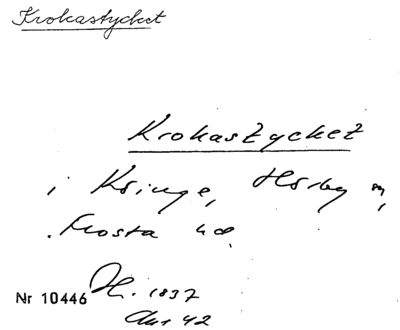 Krokastycket
Krokastycket
i Kringe, Hörby sn,
Frosta hd.
Nr 10446 H. 1837
Akt 42